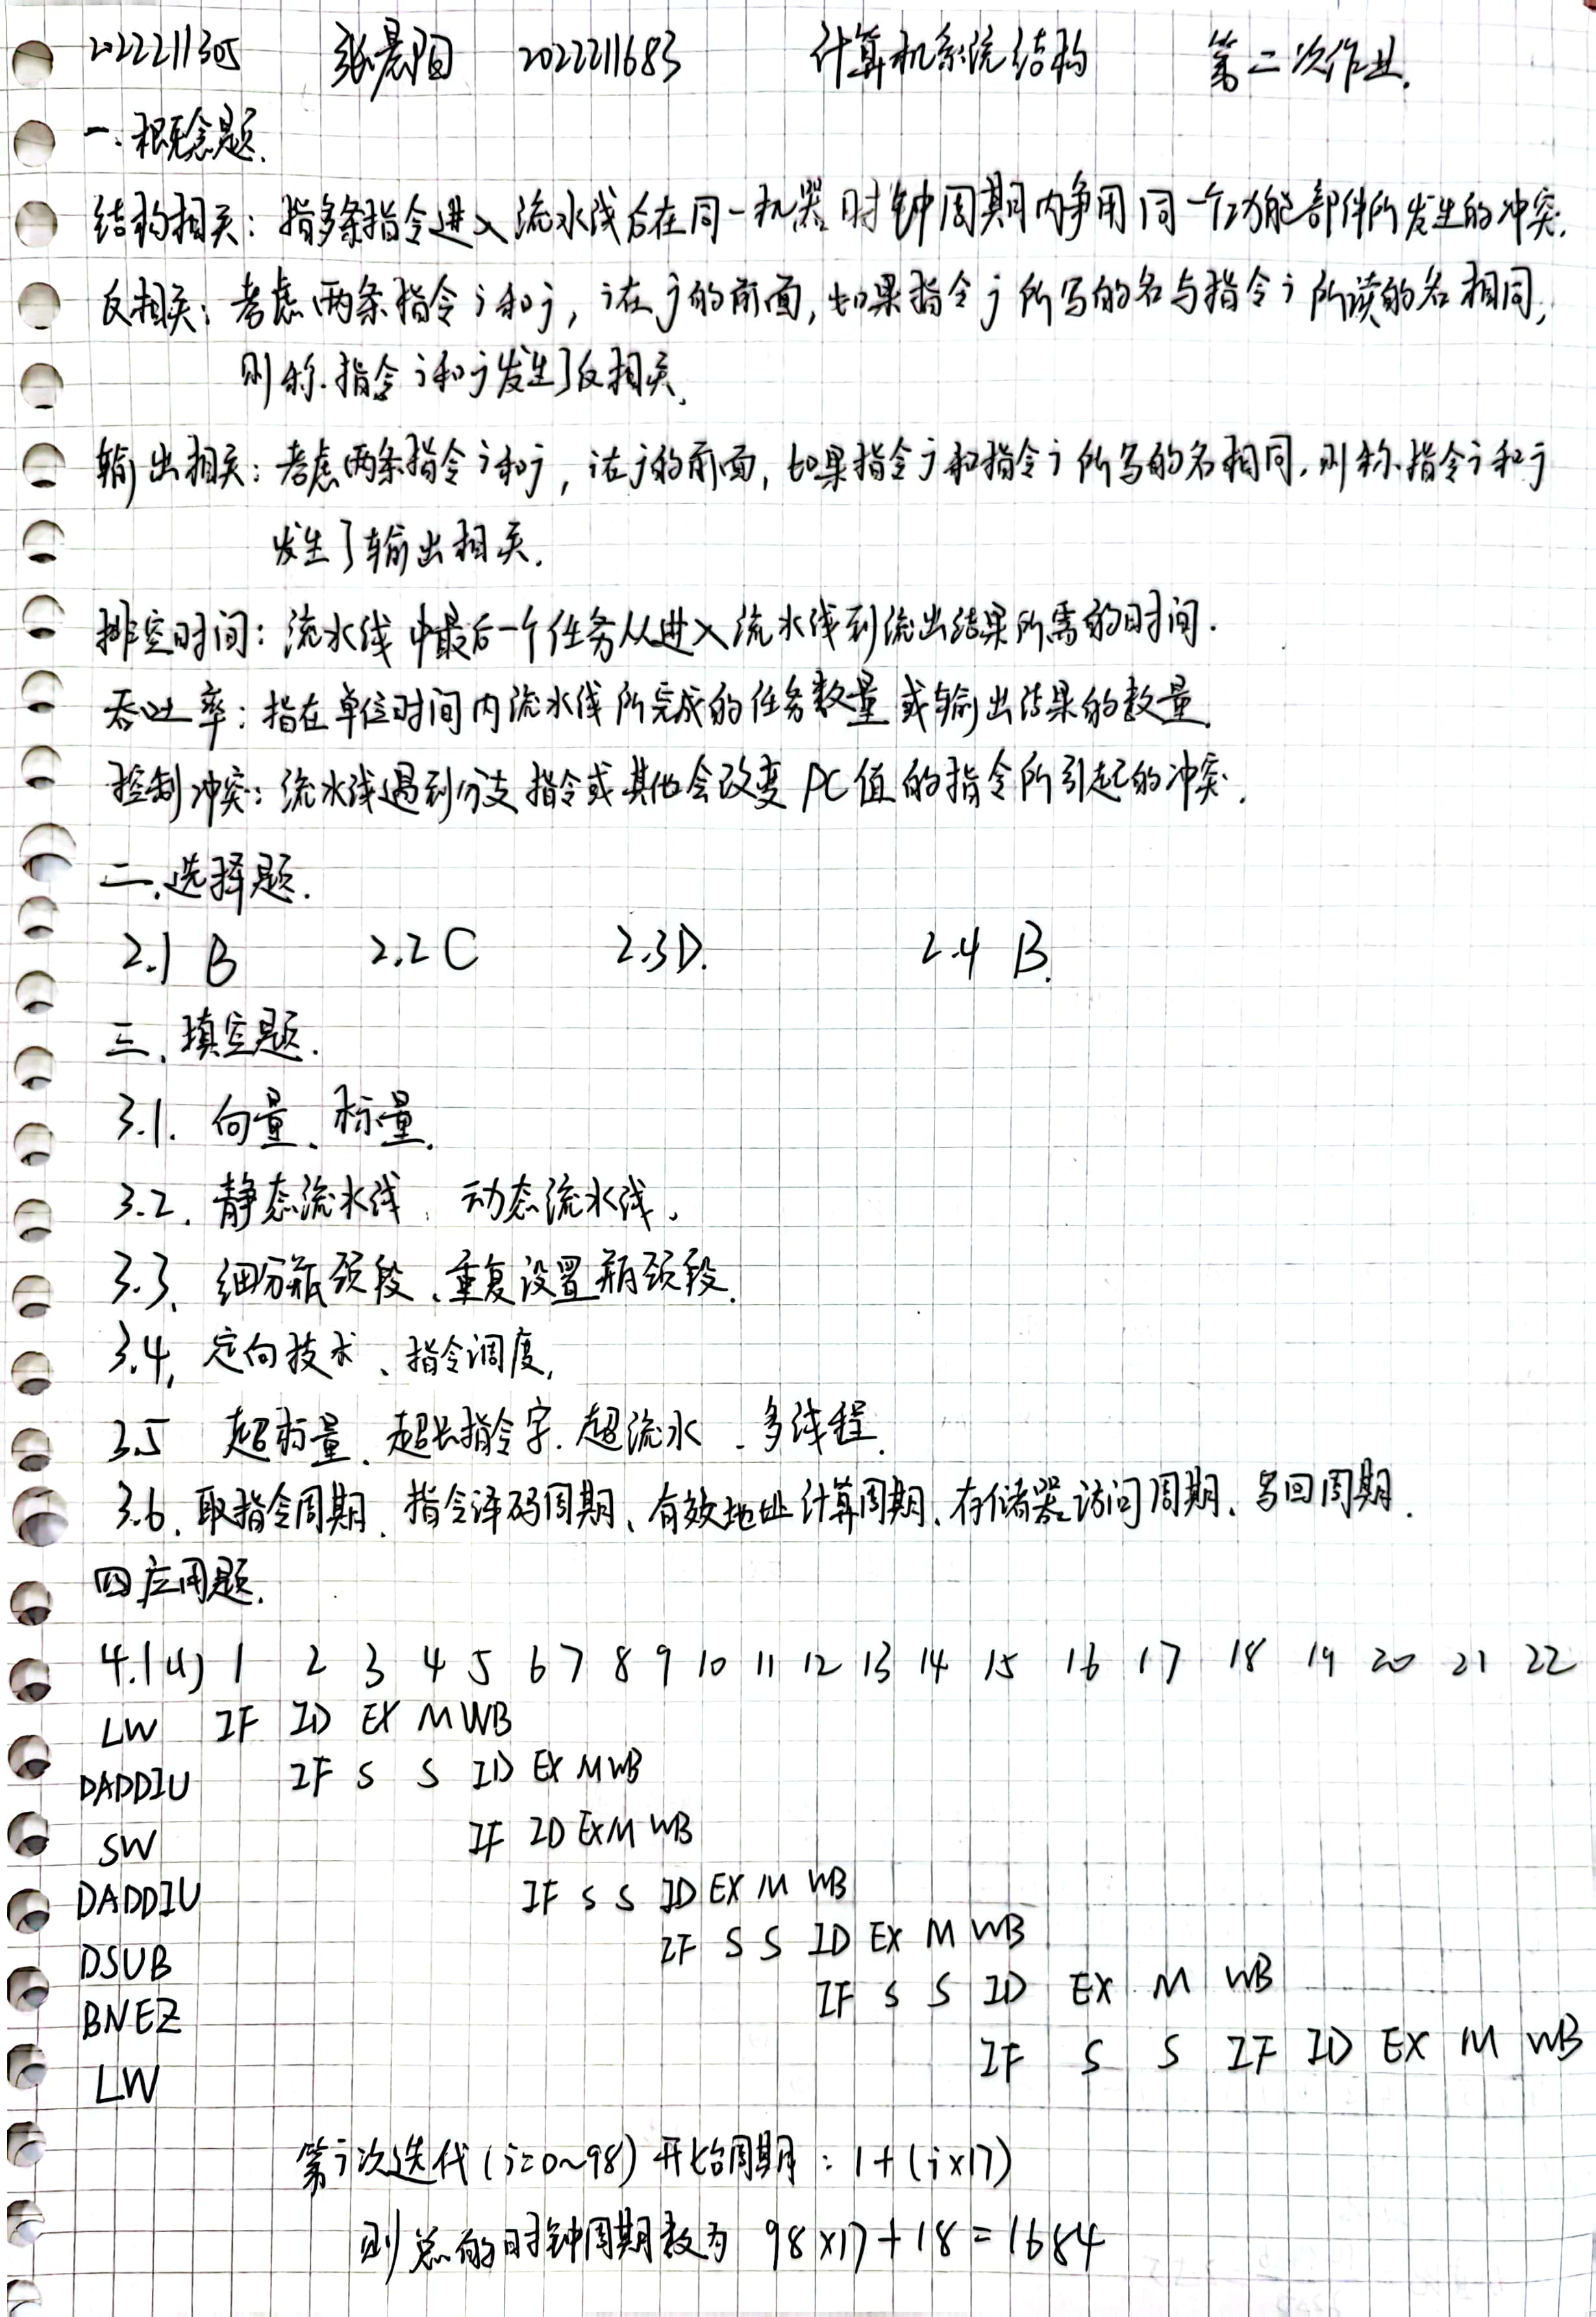 2022211305 张晨阳 2022211683 计算机系统结构 第二次作业.
一.概念题.
结构相关: 指多条指令进入流水线后在同一机器时钟周期内争用同一个功能部件所发生的冲突.
反相关: 考虑两条指令i和j, i在j的前面, 如果指令j所写的名与指令i所读的名相同,
则称指令i和j发生了反相关.
输出相关: 考虑两条指令i和j, i在j的前面, 如果指令j和指令i所写的名相同, 则称指令i和j
发生了输出相关.
排空时间: 流水线中最后一个任务从进入流水线到流出结果所需的时间.
吞吐率: 指在单位时间内流水线所完成的任务数量或输出结果的数量.
控制冲突: 流水线遇到分支指令或其他会改变PC值的指令所引起的冲突.
二.选择题.
2.1 B 2.2 C 2.3 D. 2.4 B.
三.填空题.
3.1. 向量、标量.
3.2. 静态流水线、动态流水线.
3.3. 细分瓶颈段、重复设置瓶颈段.
3.4. 定向技术、指令调度.
3.5 超标量、超长指令字、超流水、多线程.
3.6. 取指令周期、指令译码周期、有效地址计算周期、存储器访问周期、写回周期.
四应用题.
4.1 (1) 1 2 3 4 5 6 7 8 9 10 11 12 13 14 15 16 17 18 19 20 21 22
LW IF ID EX M WB
DADDIU IF S S ID EX M WB
SW IF ID EX M WB
DADDIU IF S S ID EX M WB
DSUB IF S S ID EX M WB
BNEZ IF S S ID EX M WB
LW IF S S IF ID EX M WB
第i次迭代(i=0~98)开始周期: 1+(i×17)
则总的时钟周期数为 98×17+18=1684